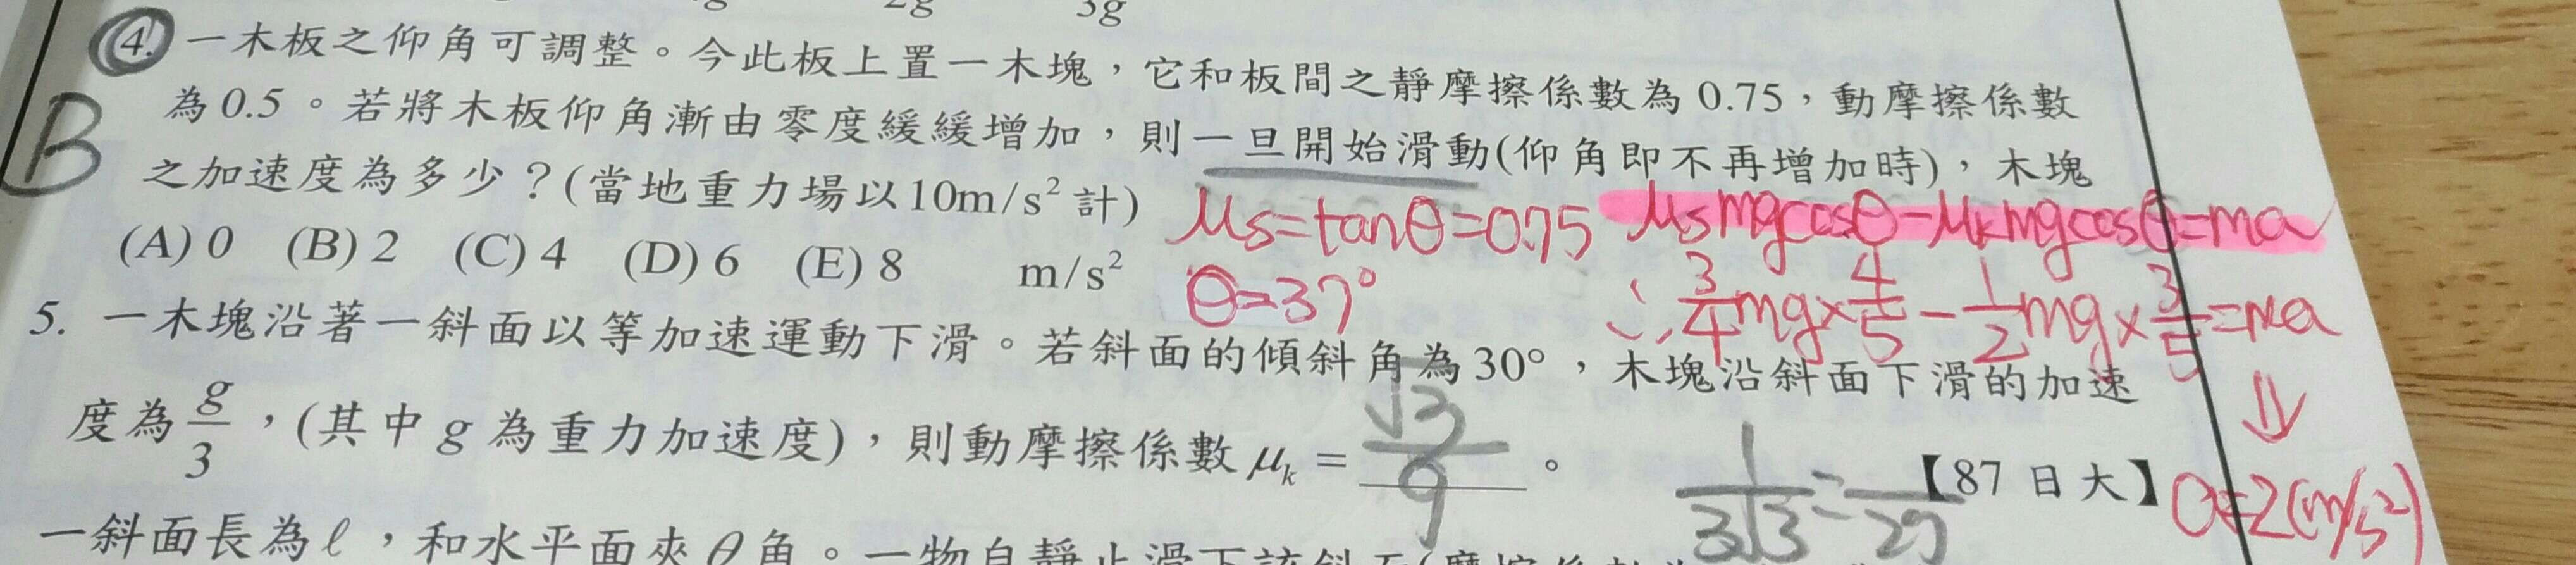 2g 3g
4. 一木板之仰角可調整。今此板上置一木塊，它和板間之靜摩擦係數為0.75，動摩擦係數
為0.5。若將木板仰角漸由零度緩緩增加，則一旦開始滑動(仰角即不再增加時)，木塊
B
之加速度為多少？(當地重力場以10m/s²計)
μs=tanθ=0.75 μsmgcosθ-μkmgcosθ=ma
(A) 0 (B) 2 (C) 4 (D) 6 (E) 8 m/s²
θ=37° ∴ 3/4 mg×4/5 - 1/2 mg×3/5 = ma
5. 一木塊沿著一斜面以等加速運動下滑。若斜面的傾斜角為30°，木塊沿斜面下滑的加速
⇓
度為g/3，(其中g為重力加速度)，則動摩擦係數μk = √3/9 。【87日大】
a=2(m/s²)
1/3√3 = /27
一斜面長為ℓ，和水平面夾θ角。一物自靜止滑下該斜